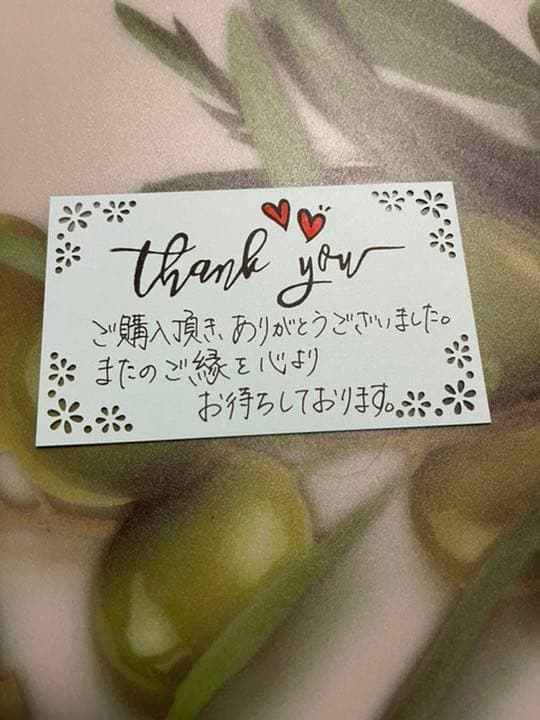 thank you
ご購入頂き、ありがとうございました。
またのご縁を心より
お待ちしております。